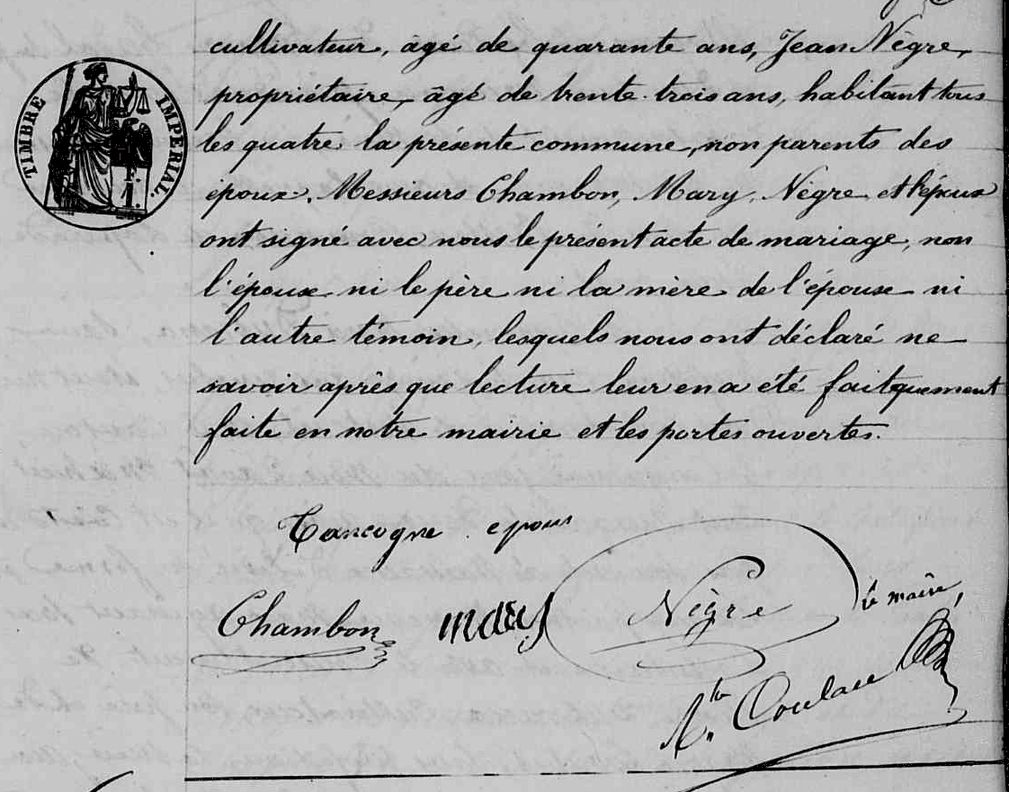 TIMBRE IMPERIAL.
cultivateur, âgé de quarante ans, Jean Nègre,
propriétaire, âgé de trente-trois ans, habitant tous
les quatre la présente commune, non parents des
époux. Messieurs Chambon, Mary, Nègre et l'époux
ont signé avec nous le présent acte de mariage, non
l'épouse ni le père ni la mère de l'épouse ni
l'autre témoin, lesquels nous ont déclaré ne
savoir après que lecture leur en a été
faite en notre mairie et les portes ouvertes.
Tancogne epoux
Chambon mary Nègre le maire,